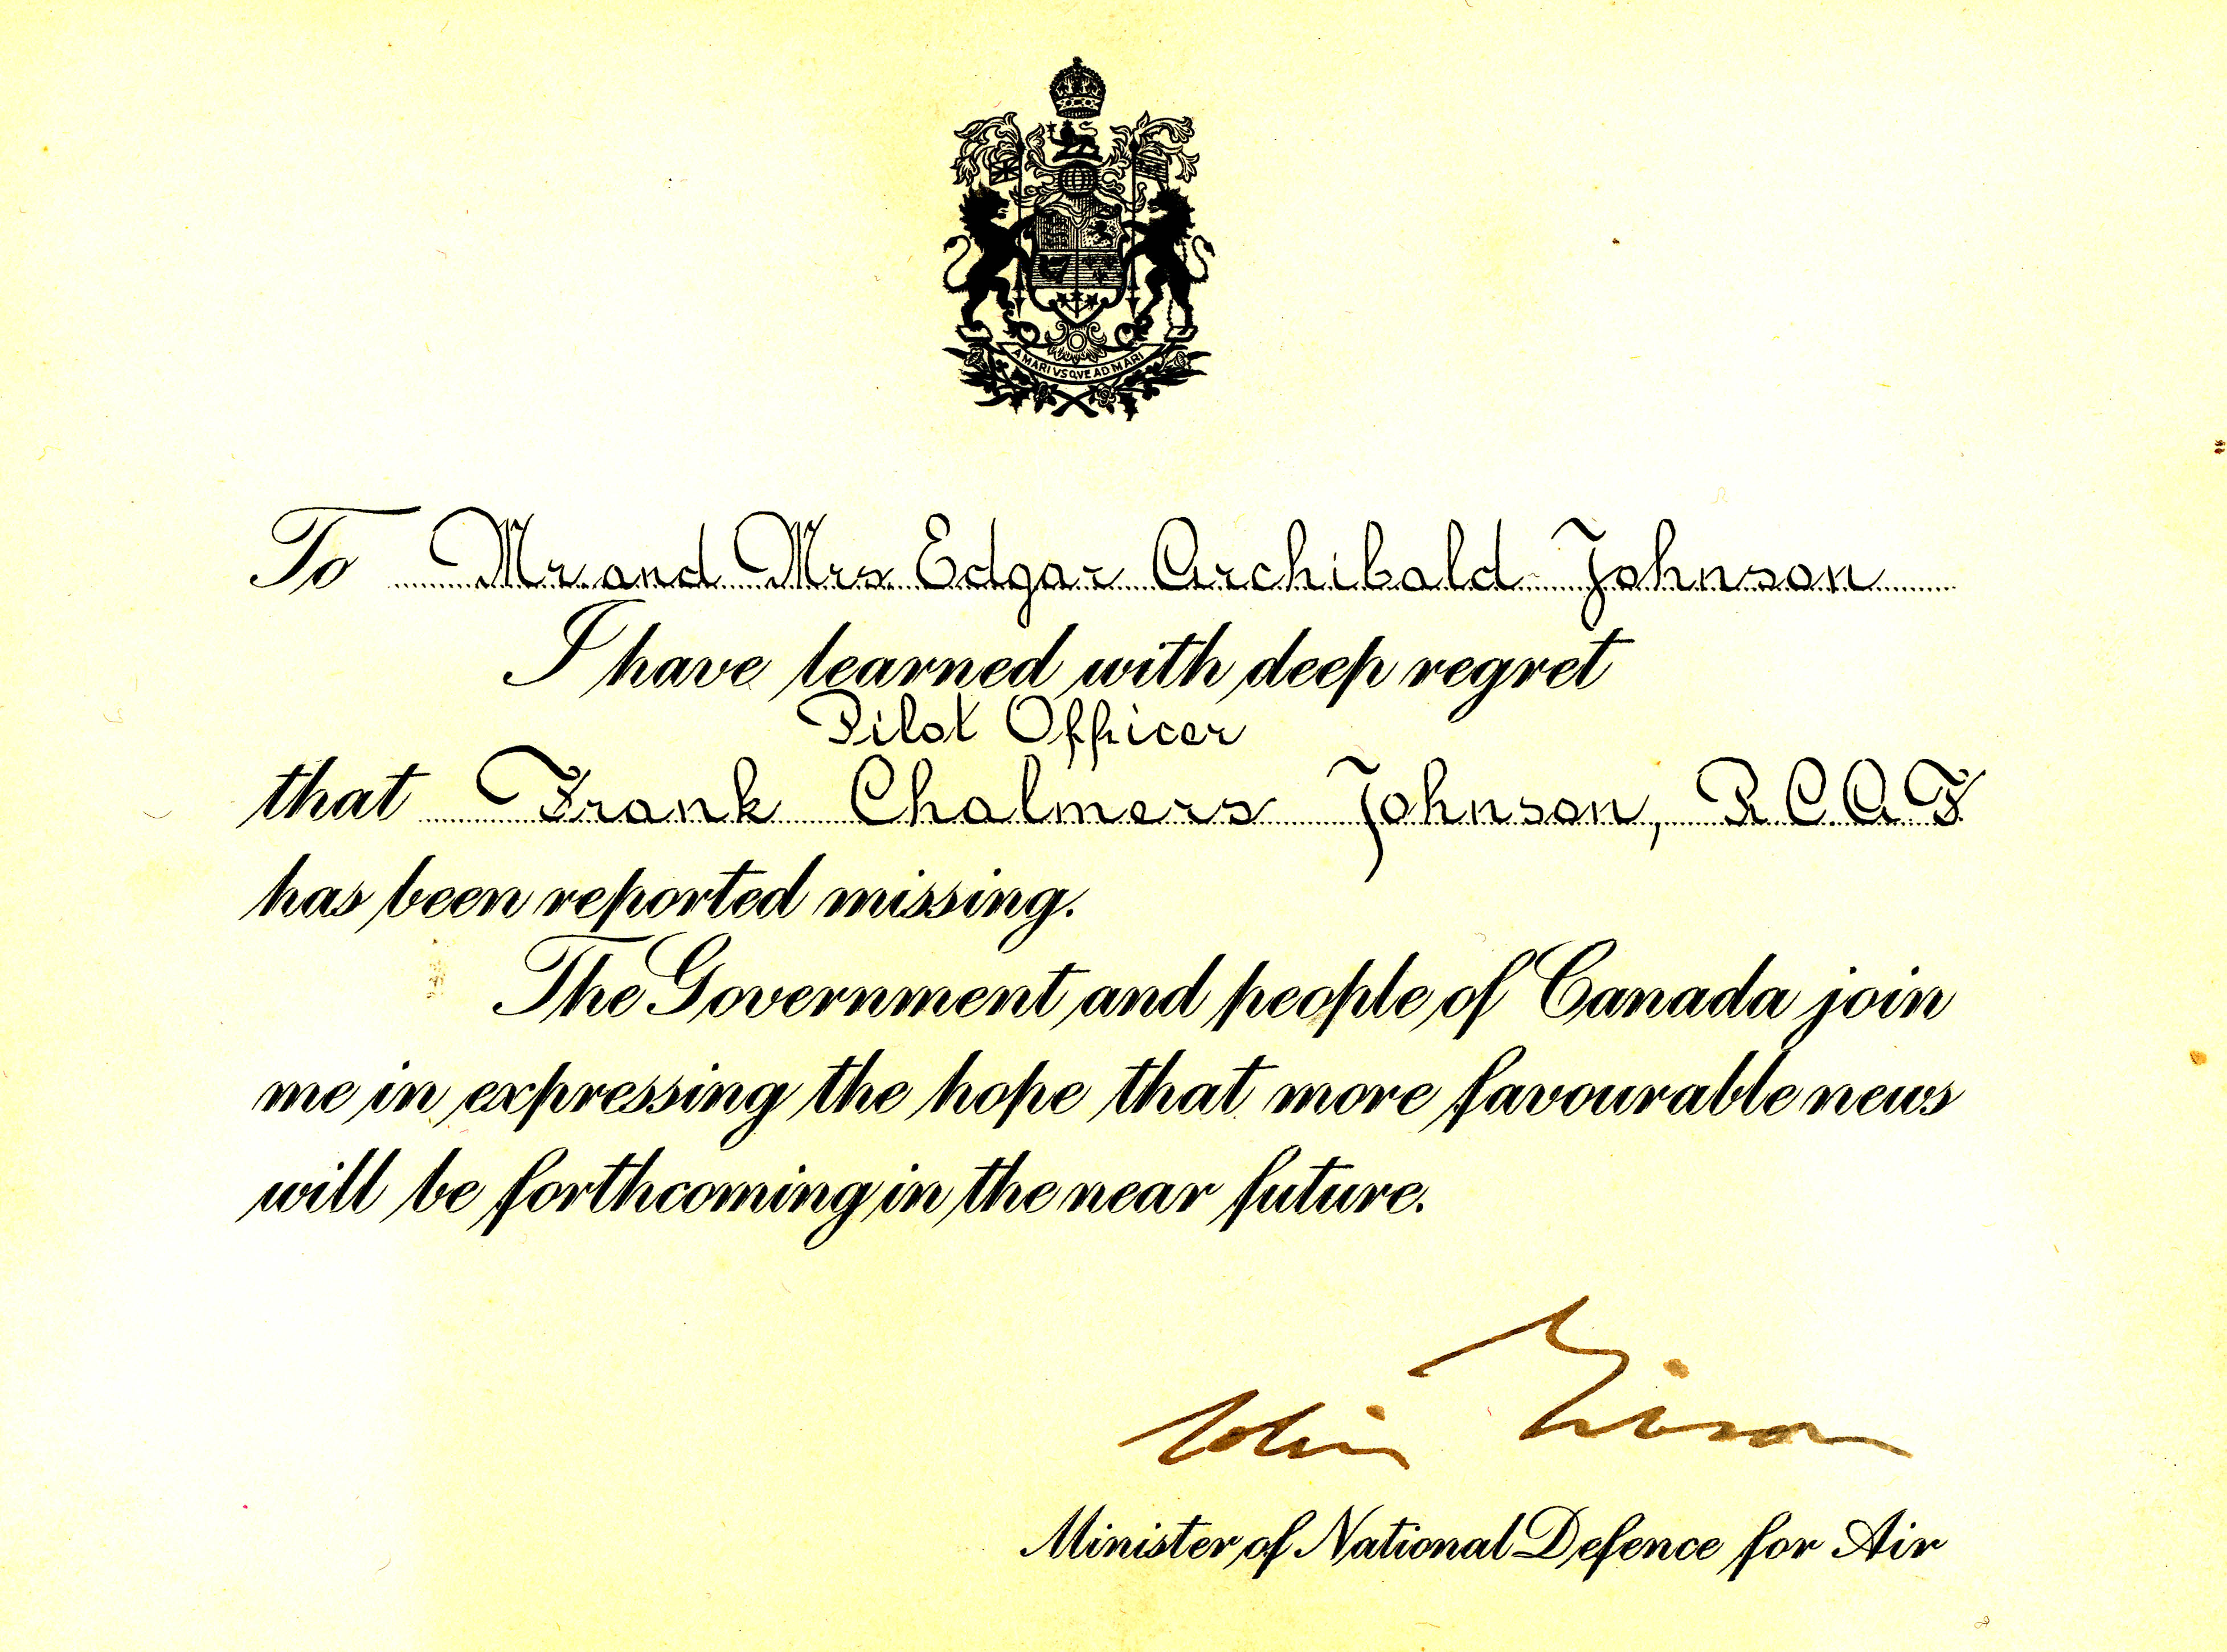 A MARI VSQVE AD MARI
To Mr. and Mrs. Edgar Archibald Johnson
I have learned with deep regret
Pilot Officer
that Frank Chalmers Johnson, R.C.A.F.
has been reported missing.
The Government and people of Canada join
me in expressing the hope that more favourable news
will be forthcoming in the near future.
Minister of National Defence for Air